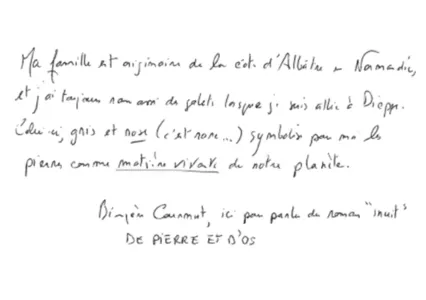 Ma famille est originaire de la côte d'Albâtre en Normandie,
et j'ai toujours ramassé des galets lorsque je suis allée à Dieppe.
Celui-ci, gris et rose (c'est rare...) symbolise pour moi les
pierres comme matière vivante de notre planète.
Bérengère Cournut, ici pour parler du roman "inuit"
DE PIERRE ET D'OS